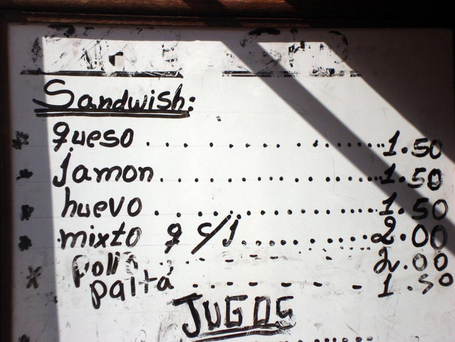 Sandwish:
queso . . . . . . . . . . . . . . . . 1.50
jamon . . . . . . . . . . . . . . . . 1.50
huevo . . . . . . . . . . . . . . . . 1.50
mixto q c/j . . . . . . . . . . . . 2.00
Poll . . . . . . . . . . 2.00
palta . . . . . . . . . . 1.50
JUGOS